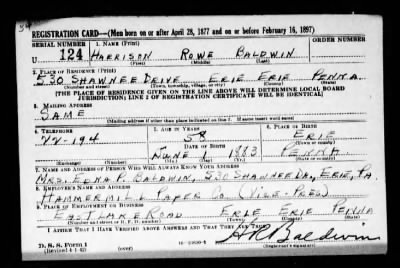 REGISTRATION CARD—(Men born on or after April 28, 1877 and on or before February 16, 1897)
SERIAL NUMBER 1. NAME (Print) ORDER NUMBER
U 124 HARRISON ROWE BALDWIN
(First) (Middle) (Last)
2. PLACE OF RESIDENCE (Print)
530 SHAWNEE DRIVE ERIE ERIE PENNA.
(Number and street) (Town, township, village, or city) (County) (State)
[THE PLACE OF RESIDENCE GIVEN ON THE LINE ABOVE WILL DETERMINE LOCAL BOARD
JURISDICTION; LINE 2 OF REGISTRATION CERTIFICATE WILL BE IDENTICAL]
3. MAILING ADDRESS
SAME
[Mailing address if other than place indicated on line 2. If same insert word same]
4. TELEPHONE 5. AGE IN YEARS 6. PLACE OF BIRTH
58 ERIE
DATE OF BIRTH (Town or county)
JUNE 1883 PENNA
(Exchange) (Number) (Mo.) (Day) (Yr.) (State or country)
7. NAME AND ADDRESS OF PERSON WHO WILL ALWAYS KNOW YOUR ADDRESS
MRS. EDNA P. BALDWIN, 530 SHAWNEE DR., ERIE, PA.
8. EMPLOYER'S NAME AND ADDRESS
HAMMERMILL PAPER CO (VICE-PRES)
9. PLACE OF EMPLOYMENT OR BUSINESS
EAST LAKE ROAD ERIE ERIE PENNA
(Number and street or R. F. D. number) (Town) (County) (State)
I AFFIRM THAT I HAVE VERIFIED ABOVE ANSWERS AND THAT THEY ARE TRUE.
D. S. S. Form 1 H R Baldwin
(Revised 4-1-42) (over) (Registrant's signature)